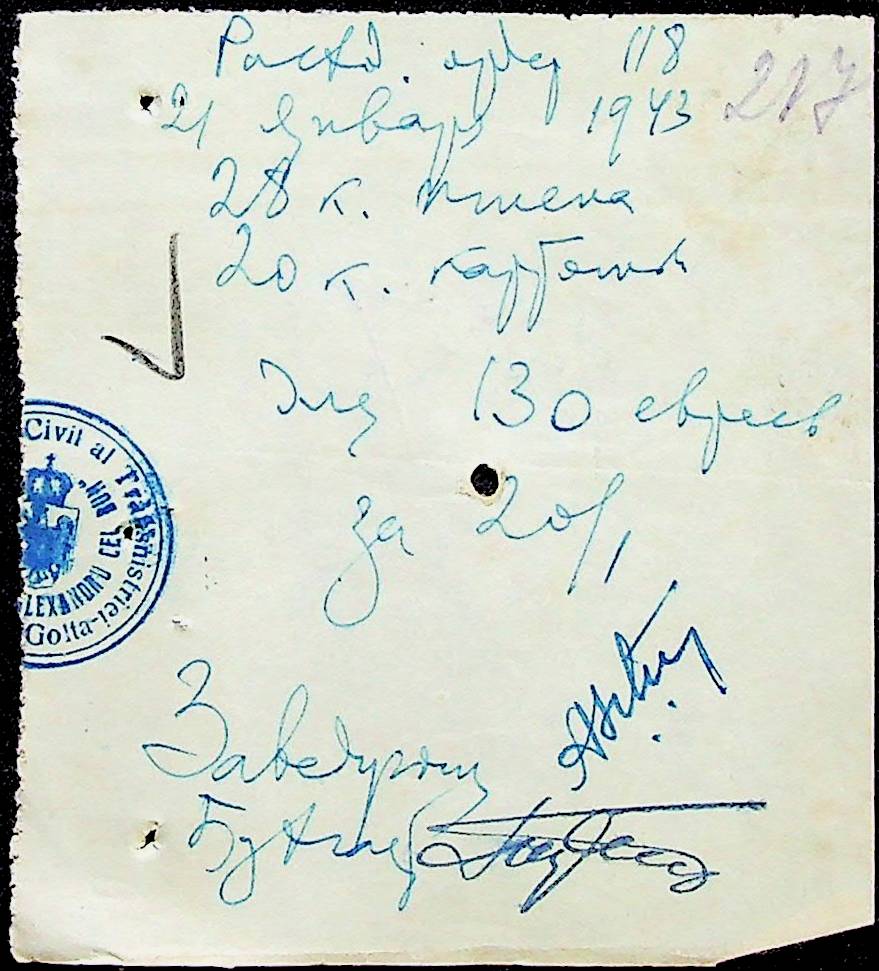 Расход. ордер 118
217
21 Января 1943
28 к. пшена
20 к. картошки
Для 130 евреев
за 20/1
Civil al Transnistriei
ALEXANDRU CEL BUN
Golta
Заведующ
Бухгалтер